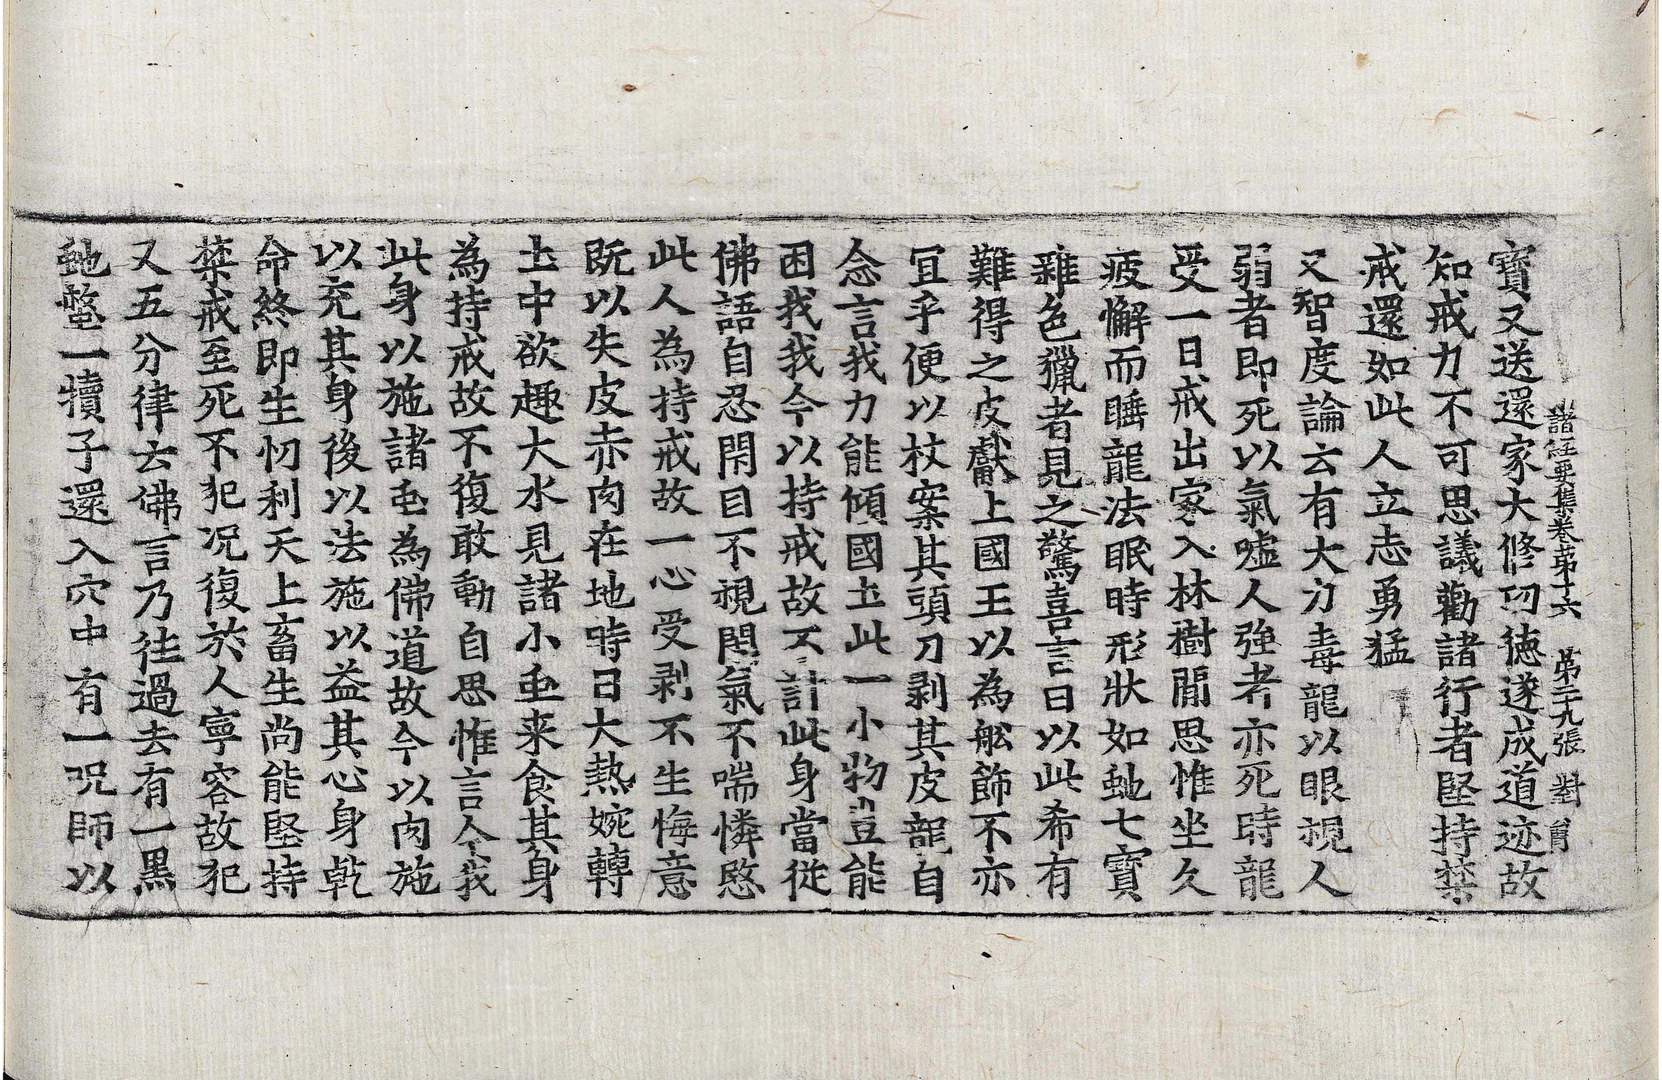 諸経要集卷苐十六 苐二十九張 對
寶又送還家大修功徳遂成道迹故
知戒力不可思議勸諸行者堅持禁
戒還如此人立志勇猛
又智度論云有大力毒龍以眼視人
弱者即死以氣噓人強者亦死時龍
受一日戒出家入林樹閒思惟坐久
疲懈而睡龍法眠時形狀如虵七寶
雜色獵者見之驚喜言曰以此希有
難得之皮獻上國王以為舩飾不亦
冝乎便以杖案其頭刀剥其皮龍自
念言我力能傾國土此一小物豈能
困我我今以持戒故不計此身當従
佛語自忍閇目不視閇氣不喘憐愍
此人為持戒故一心受剥不生悔意
既以失皮赤肉在地時日大熱婉轉
土中欲趣大水見諸小䖝来食其身
為持戒故不復敢動自思惟言今我
此身以施諸䖝為佛道故今以肉施
以充其身後以法施以益其心身乾
命終即生忉利天上畜生尚能堅持
禁戒至死不犯况復於人寧容故犯
又五分律云佛言乃徃過去有一黒
虵螫一犢子還入穴中有一呪師以